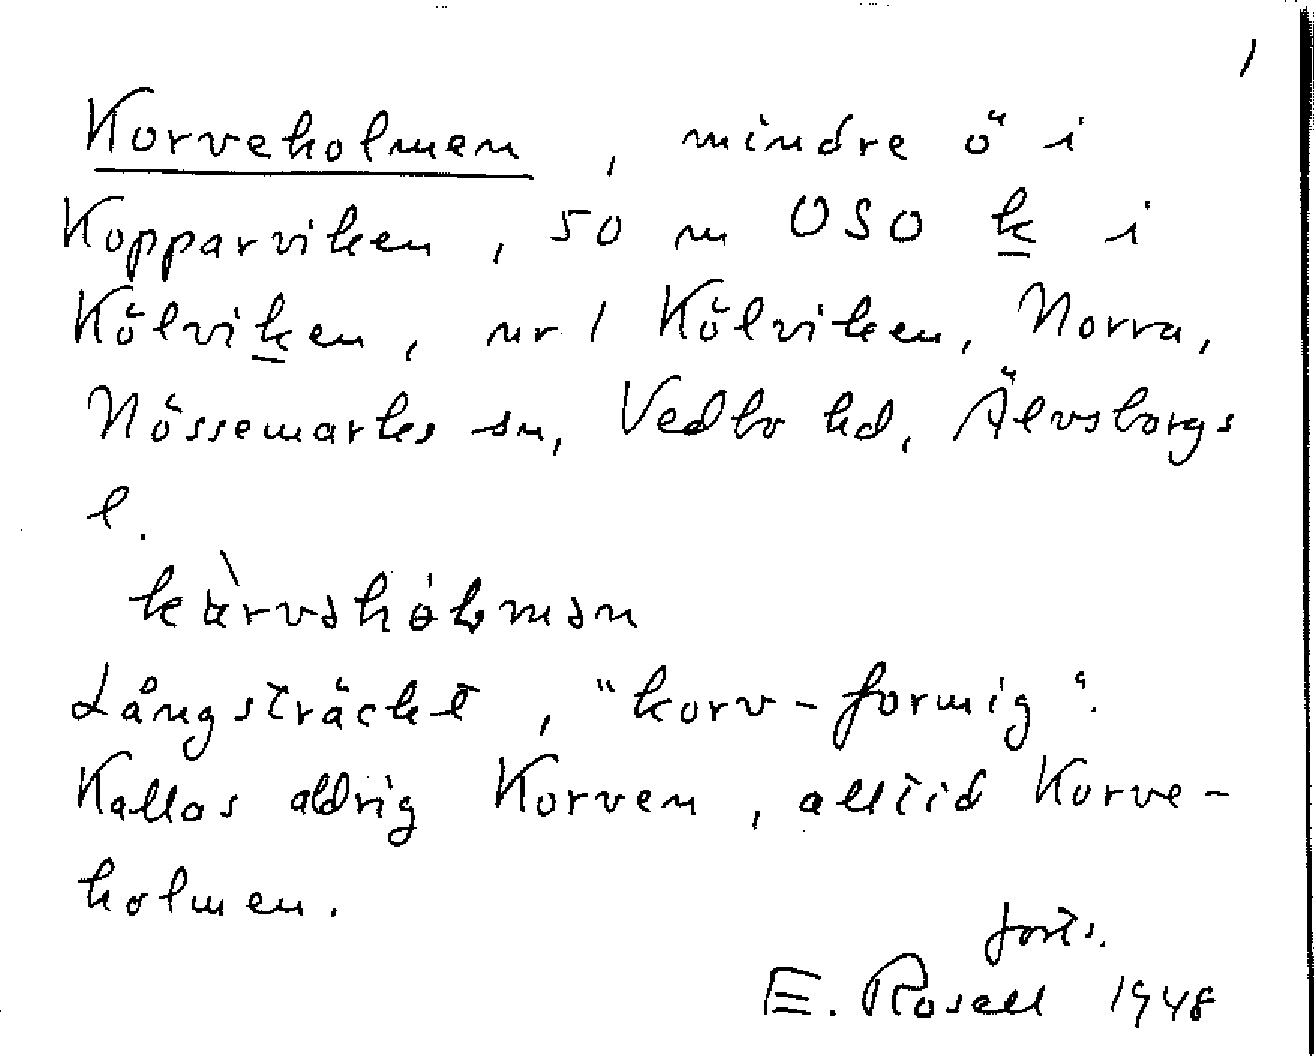 1
Korveholmen, mindre ö i
Kopparviken, 50 m OSO k i
Kölviken, nr 1 Kölviken, Norra,
Nössemarks sn, Vedbo hd, Älvsborgs
l.
Långsträckt, "korv-formig".
Kallas aldrig Korven, alltid Korve-
holmen.
forts.
E. Rosell 1948